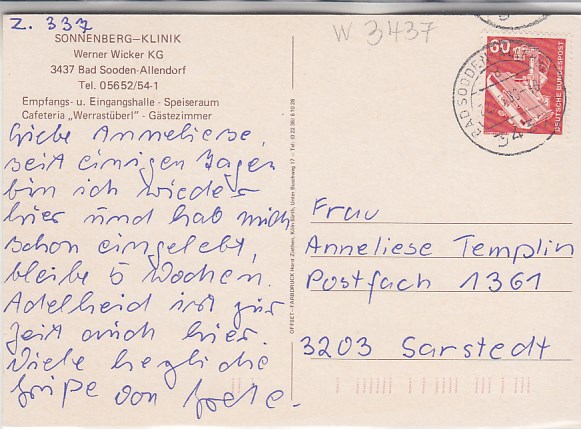 Z. 337
SONNENBERG-KLINIK
Werner Wicker KG
3437 Bad Sooden-Allendorf
Tel. 05652/54-1
Empfangs- u. Eingangshalle - Speiseraum
Cafeteria „Werrastüberl" - Gästezimmer
Liebe Anneliese,
seit einigen Tagen
bin ich wieder
hier und hab mich
schon eingelebt,
bleibe 5 Wochen.
Adelheid ist zur
Zeit auch hier.
Viele herzliche
Grüße von Grete.
OFFSET - FARBDRUCK Horst Ziethen, Köln
W 3437
60
DEUTSCHE BUNDESPOST
BAD SOODEN
Frau
Anneliese Templin
Postfach 1361
3203 Sarstedt